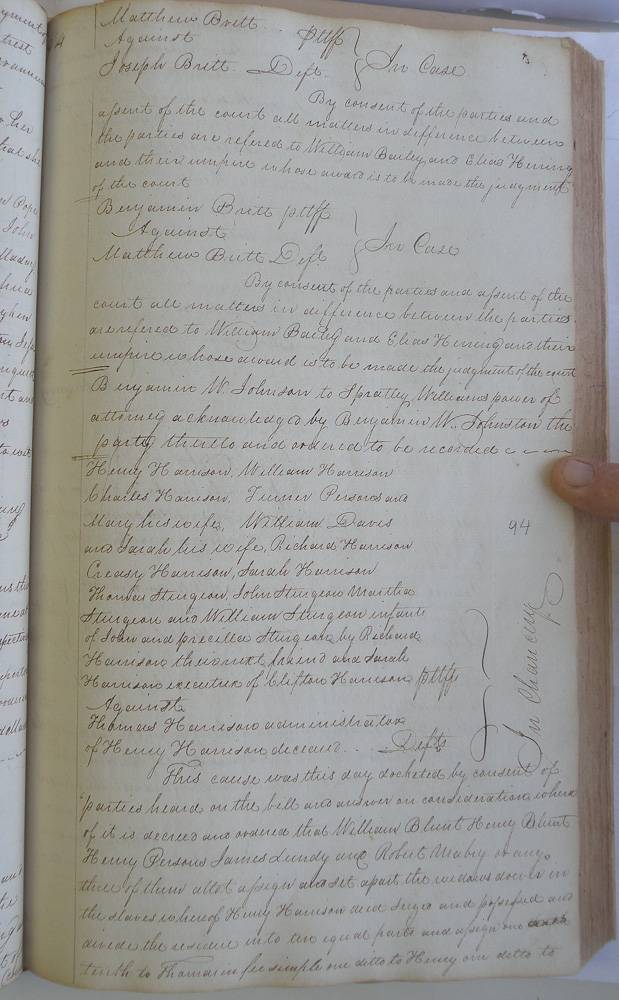 Matthew Britt
Against pltff
Joseph Britt Deft. In Case
By consent of the parties and
assent of the court all matters in difference between
the parties are refered to William Bailey, and Elias Herring
and their umpire whose award is to be made the judgment
of the court
Benjamin Britt pltff
Against
Matthew Britt Deft In Case
By consent of the parties and assent of the
court all matters in difference between the parties
are refered to William Bailey and Elias Herring and their
umpire whose award is to be made the judgment of the court
Benjamin W. Johnson to Spratley Williams power of
attorney acknowledged by Benjamin W. Johnston the
party thereto and ordered to be recorded
Henry Harrison, William Harrison
Charles Harrison, Turner Persons and
Mary his wife, William Davis
and Sarah his wife, Richard Harrison
Creasy Harrison, Sarah Harrison
Thomas Sturgeon, John Sturgeon Martha
Sturgeon and William Sturgeon infants
of John and precilla Sturgeon by Richard
Harrison their next friend and Sarah
Harrison executrix of Clifton Harrison pltffs
Against
Thomas Harrison administrator
of Henry Harrison deceasd... Defts
In Chancery
94
This cause was this day docketed by consent of
parties heard on the bill and answer on consideration where
of it is decreed and ordered that William Blunt Henry Blunt
Henry Persons James Lundy and Robert Mabry or any
three of them allot assign and set apart the widows dower in
the slaves whereof Henry Harrison died seized and possessed and
divide the residue into ten equal parts and assign one
tenth to Thomas in fee simple one ditto to Henry one ditto to